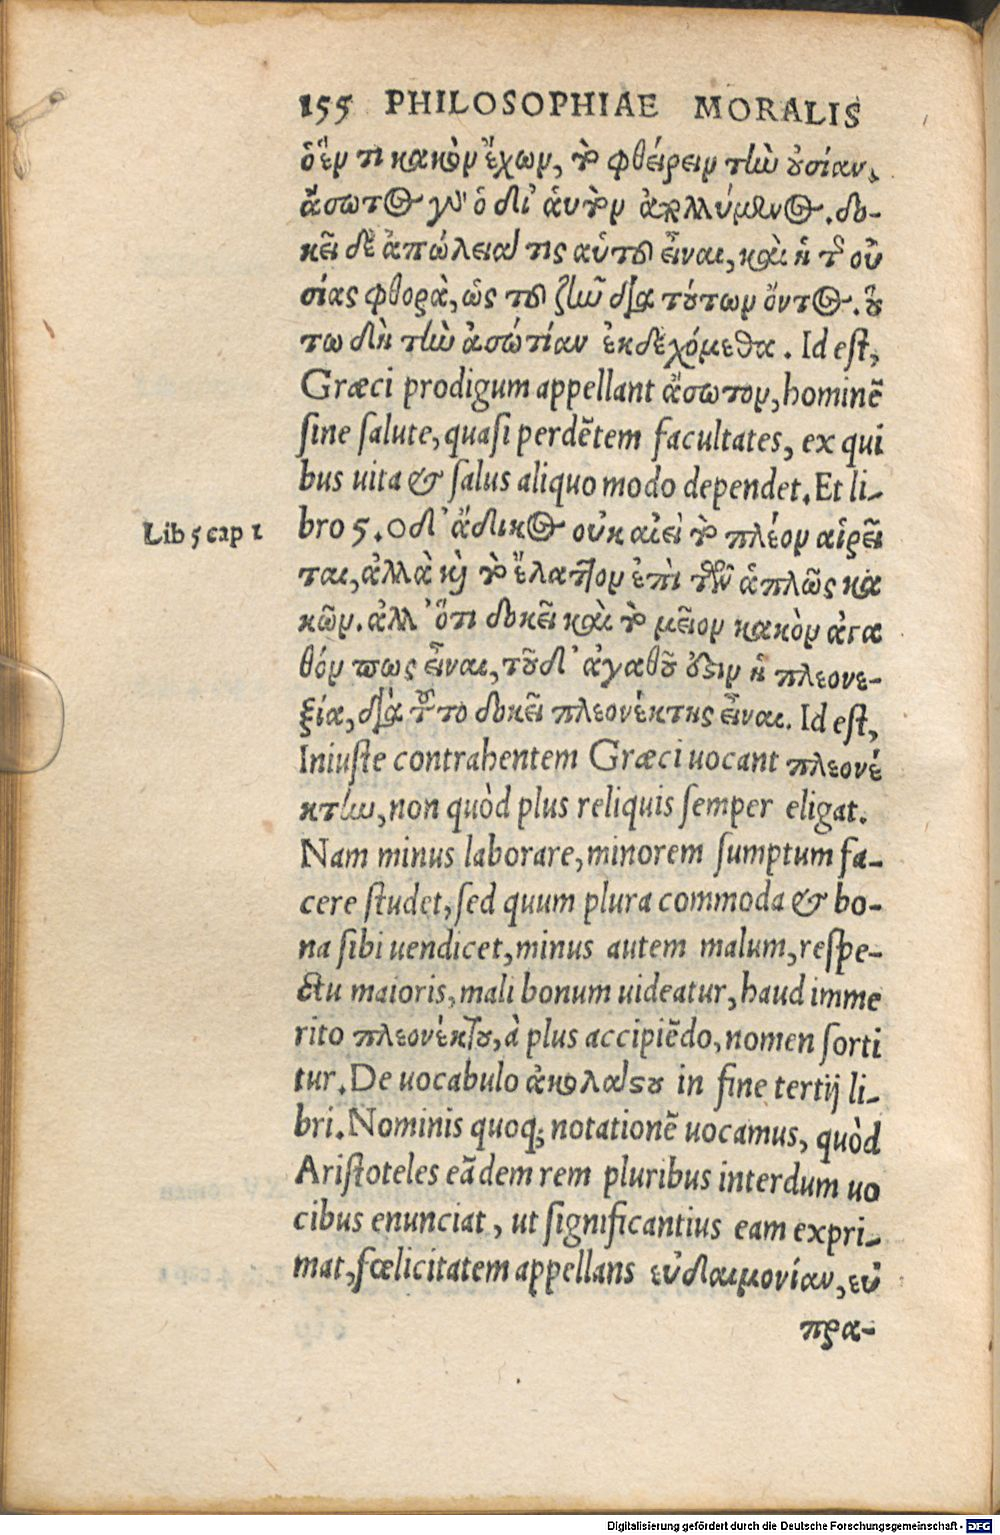 155 PHILOSOPHIAE MORALIS
ὁ ἕν τι κακὸν ἔχων, τὸ φθείρειν τὴν ȣσίαν.
ἄσωτος γὰρ ὁ δι' ἁυτὸν ἀπολλύμενος. δο-
κεῖ δὲ ἀπώλειά τις αὑτοῦ εἶναι, καὶ ἡ τῆς οὐ
σίας φθορὰ, ὡς τοῦ ζῆν διὰ τȣ́των ὄντος. ȣ̔́
τω δὴ τὴν ἀσώτίαν ἐκδεχόμεθα. Id eſt,
Græci prodigum appellant ἄσωτον, hominẽ
ſine ſalute, quaſi perdẽtem facultates, ex qui
bus uita & ſalus aliquo modo dependet. Et li-
Lib 5 cap 1
bro 5. Ο δ' ἄδικος οὐκ αἰεὶ τὸ πλέον αἱρεῖ
ται, ἀλλὰ καὶ τὸ ἔλαττον ἐπὶ τῶν ἁπλῶς κα
κῶν. ἀλλ' ὅτι δοκεῖ καὶ τὸ μεῖον κακὸν ἀγα
θόν πως εἶναι, τοῦ δ' ἀγαθοῦ ȣ̓ϛιν ἡ πλεονε-
ξία, διὰ τοῦτο δοκεῖ πλεονέκτης εἶναι. Id eſt,
Iniuſte contrahentem Græci uocant πλεονέ
κτην, non quòd plus reliquis ſemper eligat.
Nam minus laborare, minorem ſumptum fa-
cere ſtudet, ſed quum plura commoda & bo-
na ſibi uendicet, minus autem malum, reſpe-
ctu maioris, mali bonum uideatur, haud imme
rito πλεονέκτȣ, à plus accipiẽdo, nomen ſorti
tur. De uocabulo ἀκολάϛȣ in fine tertij li-
bri. Nominis quoq; notationẽ uocamus, quòd
Ariſtoteles eãdem rem pluribus interdum uo
cibus enunciat, ut ſignificantius eam expri-
mat, fœlicitatem appellans εὐδαιμονίαν, εὐ
πρα-
Digitalisierung gefördert durch die Deutsche Forschungsgemeinschaft - DFG